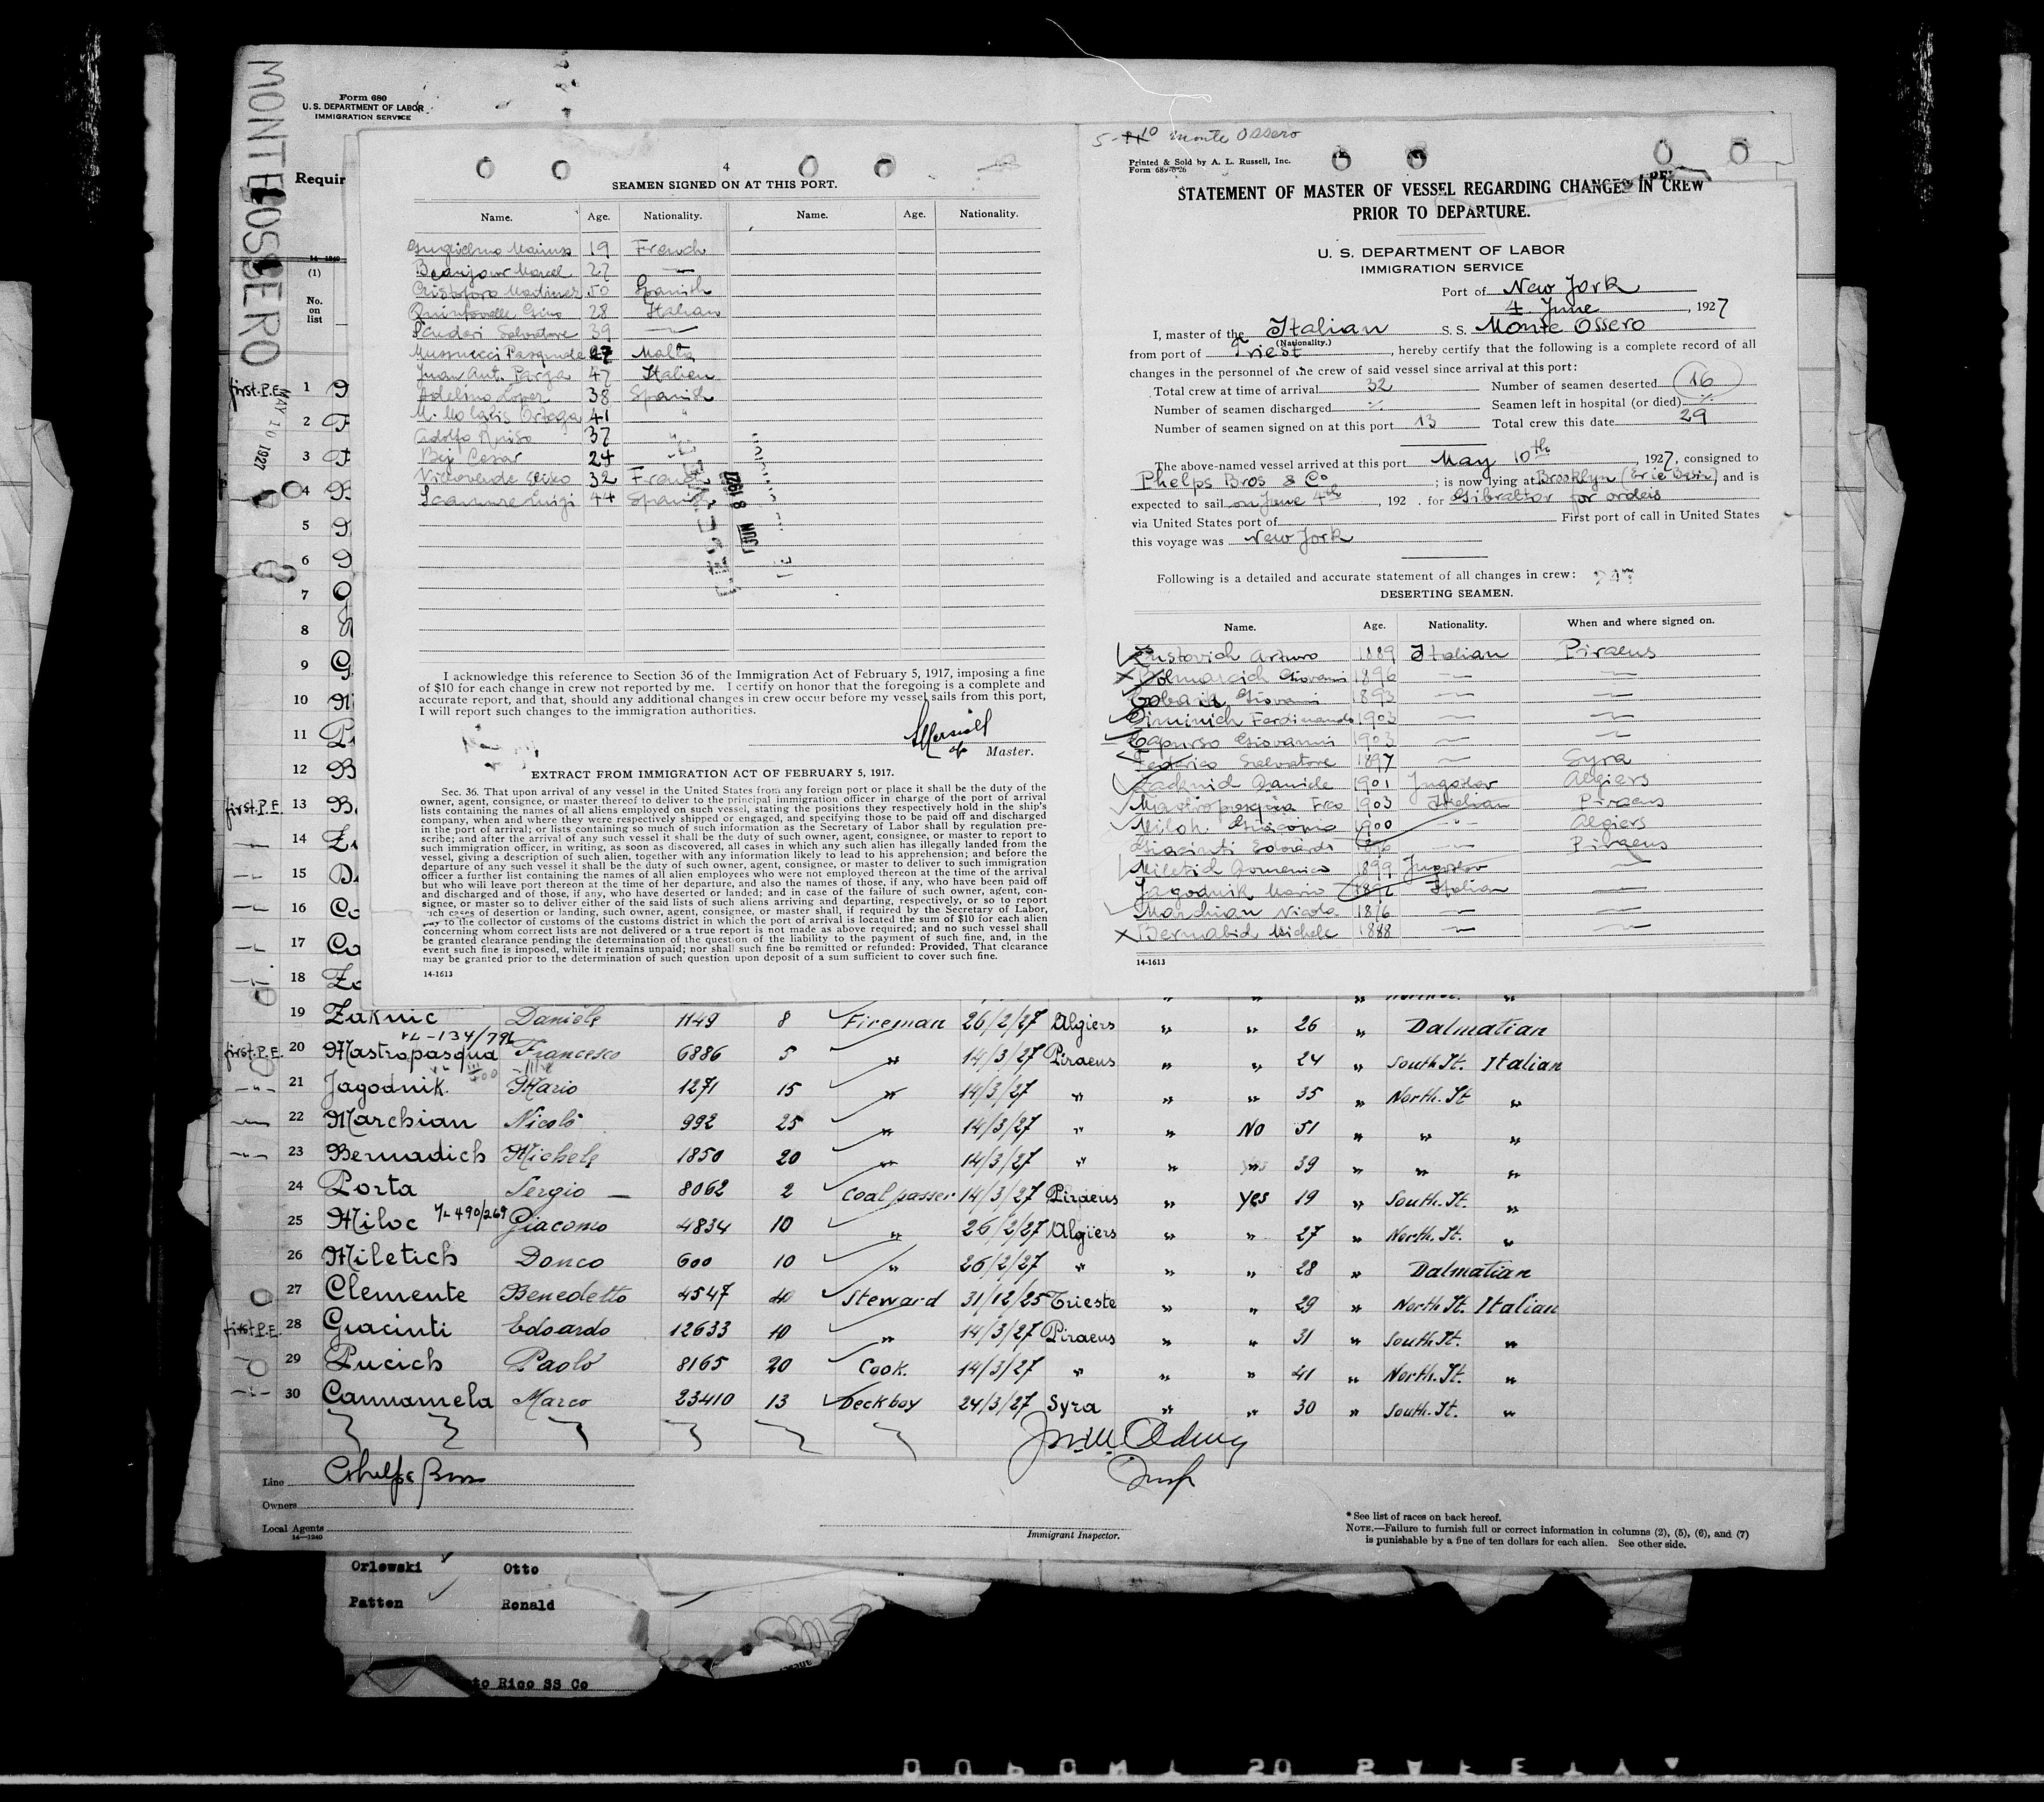 MONTE OSSERO
MAY 10 1927
Form 680
U. S. DEPARTMENT OF LABOR
IMMIGRATION SERVICE
Requir
14-1240
(1)
No.
on
list
4
SEAMEN SIGNED ON AT THIS PORT.
Name. Age. Nationality. Name. Age. Nationality.
19 French
Marcel 27 —
50 Spanish
Gino 28 Italian
Salvatore 39 —
27 Malta
Juan Ant. Parga 47 Italian
Adelino Lopez 38 Spanish
Ortega 41 "
Adolfo 37 "
Cesar 24 "
32 French
Luigi 44 Spanish
JUN 8 1927
I acknowledge this reference to Section 36 of the Immigration Act of February 5, 1917, imposing a fine
of $10 for each change in crew not reported by me. I certify on honor that the foregoing is a complete and
accurate report, and that, should any additional changes in crew occur before my vessel sails from this port,
I will report such changes to the immigration authorities.
Master.
EXTRACT FROM IMMIGRATION ACT OF FEBRUARY 5, 1917.
Sec. 36. That upon arrival of any vessel in the United States from any foreign port or place it shall be the duty of the
owner, agent, consignee, or master thereof to deliver to the principal immigration officer in charge of the port of arrival
lists containing the names of all aliens employed on such vessel, stating the positions they respectively hold in the ship's
company, when and where they were respectively shipped or engaged, and specifying those to be paid off and discharged
in the port of arrival; or lists containing so much of such information as the Secretary of Labor shall by regulation pre-
scribe; and after the arrival of any such vessel it shall be the duty of such owner, agent, consignee, or master to report to
such immigration officer, in writing, as soon as discovered, all cases in which any such alien has illegally landed from the
vessel, giving a description of such alien, together with any information likely to lead to his apprehension; and before the
departure of any such vessel it shall be the duty of such owner, agent, consignee, or master to deliver to such immigration
officer a further list containing the names of all alien employees who were not employed thereon at the time of the arrival
but who will leave port thereon at the time of her departure, and also the names of those, if any, who have been paid off
and discharged and of those, if any, who have deserted or landed; and in case of the failure of such owner, agent, con-
signee, or master so to deliver either of the said lists of such aliens arriving and departing, respectively, or so to report
such cases of desertion or landing, such owner, agent, consignee, or master shall, if required by the Secretary of Labor,
pay to the collector of customs of the customs district in which the port of arrival is located the sum of $10 for each alien
concerning whom correct lists are not delivered or a true report is not made as above required; and no such vessel shall
be granted clearance pending the determination of the question of the liability to the payment of such fine, and, in the
event such fine is imposed, while it remains unpaid; nor shall such fine be remitted or refunded: Provided, That clearance
may be granted prior to the determination of such question upon deposit of a sum sufficient to cover such fine.
14-1613
Monte Ossero
Printed & Sold by A. L. Russell, Inc.
Form 689-6-26
STATEMENT OF MASTER OF VESSEL REGARDING CHANGES IN CREW
PRIOR TO DEPARTURE.
U. S. DEPARTMENT OF LABOR
IMMIGRATION SERVICE
Port of New York
4. June, 1927
I, master of the Italian S. S. Monte Ossero
(Nationality.)
from port of Triest, hereby certify that the following is a complete record of all
changes in the personnel of the crew of said vessel since arrival at this port:
Total crew at time of arrival 32 Number of seamen deserted 16
Number of seamen discharged % Seamen left in hospital (or died) %
Number of seamen signed on at this port 13 Total crew this date 29
The above-named vessel arrived at this port May 10th, 1927, consigned to
Phelps Bros & Co; is now lying at Brooklyn (Erie Basin) and is
expected to sail on June 4th, 192 . for Gibraltar for orders
via United States port of First port of call in United States
this voyage was New York
Following is a detailed and accurate statement of all changes in crew:
DESERTING SEAMEN.
Name. Age. Nationality. When and where signed on.
Arturo 1889 Italian Piraeus
Giovanni 1896 — —
Giovanni 1893 — —
Ferdinando 1903 — —
Giovanni 1903 — —
Federico Salvatore 1897 — Syra
Daniele 1901 Jugoslav Algiers
Mastropasqua Fco 1903 Italian Piraeus
Miloh. Giacomo 1900 — " — Algiers
Giacinti Edoardo — Piraeus
Miletich Domenico 1899 Jugoslav —
Jagodnik Mario Italian —
Marchian Nicolo 1876 — —
Michele 1888 — —
14-1613
first.P.E. 1
2
3
4
5
6
7
8
9
10
11
12
first.P.E. 13
14
15
16
17
18
19 Zaknic Daniele 1149 8 Fireman 26/2/27 Algiers " " 26 " Dalmatian
VL-134/796
first.P.E. 20 Mastropasqua Francesco 6886 5 " 14/3/27 Piraeus " " 24 " South.It. Italian
21 Jagodnik. Mario 1271 15 " 14/3/27 " " " 35 " North.It "
22 Marchian Nicolò 992 25 " 14/3/27 " " No 51 " " "
23 Bernadich Michele 1850 20 " 14/3/27 " " " 39 " " "
24 Porta Sergio — 8062 2 Coal passer 14/3/27 Piraeus " yes 19 " South.It. "
25 Miloc VL 490/269 Giacomo 4834 10 " 26/2/27 Algiers " " 27 " North.It. "
26 Miletich Donco 600 10 " 26/2/27 " " " 28 " Dalmatian
27 Clemente Benedetto 4547 40 Steward 31/12/25 Trieste " " 29 " North It. Italian
first.P.E. 28 Giacinti Edoardo 12633 10 " 14/3/27 Piraeus " " 31 " South.It. "
29 Pucich Paolo 8165 20 Cook. 14/3/27 " " " 41 " North.It. "
30 Cannamela Marco 23410 13 Deckboy 24/3/27 Syra " " 30 " South.It. "
Line Phelps Bros
Owners
Local Agents
14-1240
Immigrant Inspector.
* See list of races on back hereof.
NOTE.—Failure to furnish full or correct information in columns (2), (5), (6), and (7)
is punishable by a fine of ten dollars for each alien. See other side.
Orlewski Otto
Patten Ronald
to Rico SS Co